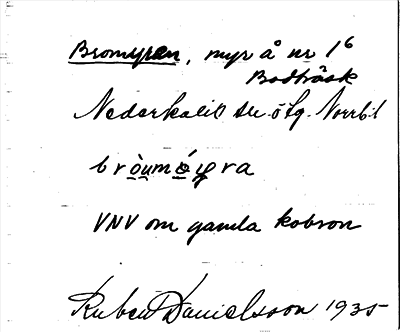 Bromyran, myr å nr 1⁶
Bodträsk
Nederkalix sn. ö. lg. Norrb. l
bròumǿyra
VNV om gamla kobron
Ruben Danielsson 1935